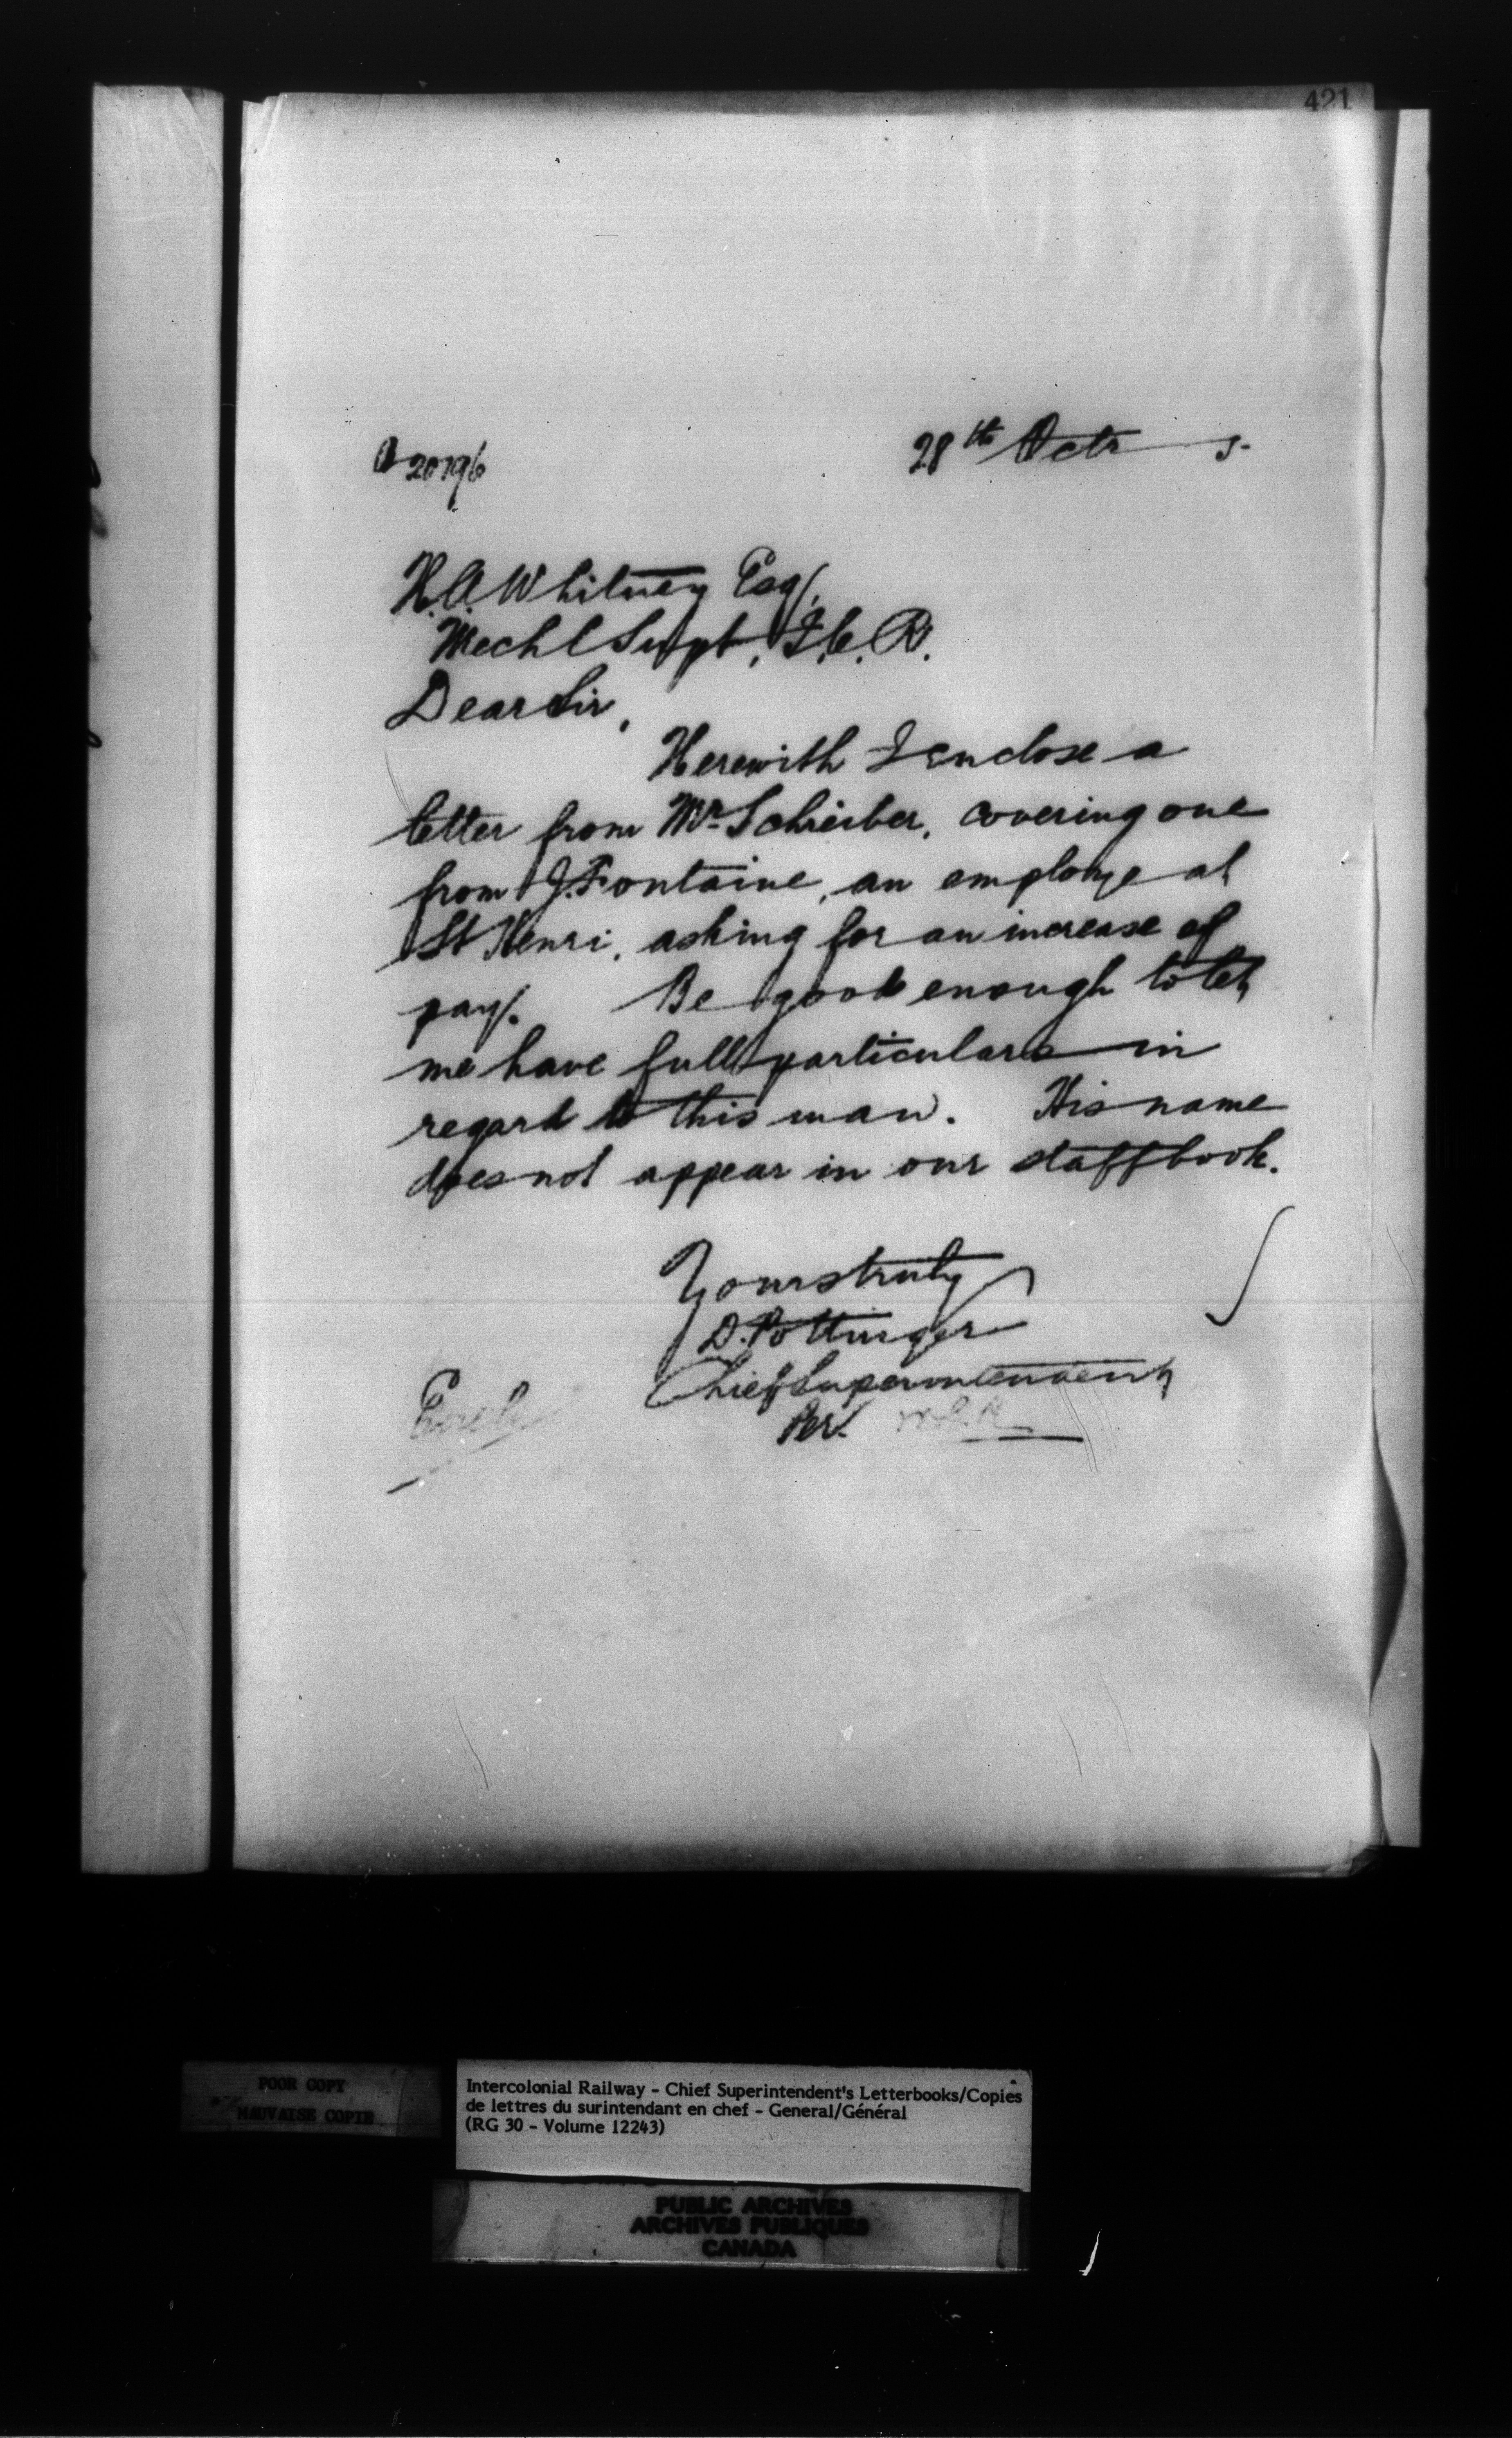 421
20196
28th Octr 5
H.A. Whitney Esq,
Mechl Supt, I.C.R.
Dear Sir,
Herewith I enclose a
letter from Mr Schreiber, covering one
from J. Fontaine, an employe at
St Henri, asking for an increase of
pay. Be good enough to let
me have full particulars in
regard to this man. His name
does not appear in our staff book.
Yours truly
D. Pottinger
Chief Superintendent
Per.
Encl
POOR COPY
MAUVAISE COPIE
Intercolonial Railway - Chief Superintendent's Letterbooks/Copies
de lettres du surintendant en chef - General/Général
(RG 30 - Volume 12243)
PUBLIC ARCHIVES
ARCHIVES PUBLIQUES
CANADA